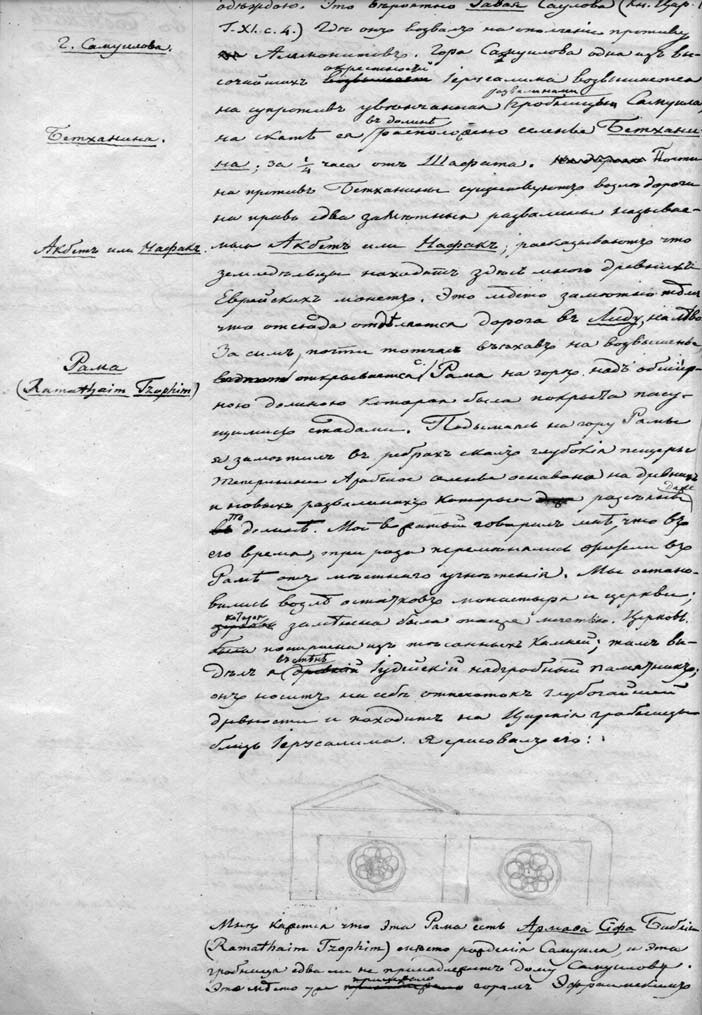 одеждою. Это вѣроятно Гавая Саулова (Кн. Цар. I
Г. XI. с. 4.) Гдѣ онъ воззвалъ на ополченіе противу
г. Самуилова.
Аммонитовъ. Гора Самуилова одна изъ вы-
сочайшихъ окрестностей Іерусалима возвышается
на супротивъ увѣнчанная развалинами гробницы Самуила,
Бетханина.
на скатѣ ея въ долинѣ расположено селенье Бетхани-
на; за ¼ часа отъ Шафата. Почти
на противъ Бетханины существуютъ возлѣ дороги
на право едва замѣтныя развалины называе-
Акбетъ или Нафакъ.
мыя Акбетъ или Нафакъ; расказываютъ что
земледѣльцы находятъ здѣсь много древнихъ
Еврейскихъ монетъ. Это мѣсто замѣтно тѣмъ
что отсюда отдѣляется дорога въ Лиду, на лѣво
За симъ, почти тотчасъ въѣхавъ на возвышенье,
Рама
(Ramathaim Tzophim)
открывается Рама на горѣ надъ обшир-
ною долиною которая была покрыта пасу-
щимися стадами. Подымаясь на гору Рамы
я замѣтилъ въ ребрахъ скалъ глубокія пещеры
Теперешнее Арабское селенье основано на древнихъ
и новыхъ развалинахъ которые разсѣяны даже
по долинѣ. Мой вожатый говорилъ мнѣ, что въ
его время, три раза перемѣнялись жители въ
Рамѣ отъ мѣстнаго угнѣтенія. Мы остано-
вились возлѣ остатковъ монастыря и церкви;
которая замѣнена была опаще мечетью. Церковь
построена изъ тесанныхъ камней; тамъ ви-
дѣлъ я въ стѣнѣ Іудейскій надгробный памятникъ;
онъ носитъ на себѣ отпечатокъ глубочайшей
древности и походитъ на Царскія гробницы
близь Іерусалима. Я срисовалъ его:
Мнѣ кажется что эта Рама есть Армаѳа Сифа Библіи
(Ramathaim Tzophim) мѣсто рожденія Самуила, и эта
гробница едва ли не принадлежитъ дому Самуилову.
Это мѣсто уже горамъ Эфраимскимъ